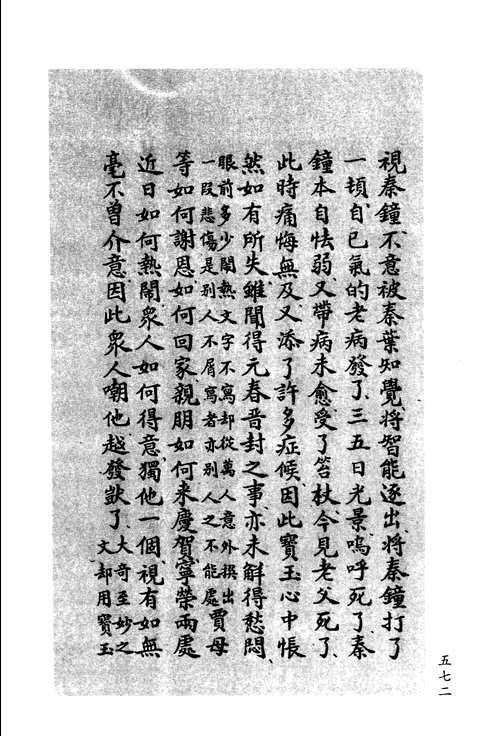 視秦鐘不意被秦葉知覺將智能逐出將秦鐘打了
一頓自已氣的老病發了三五日光景嗚呼死了秦
鐘本自怯弱又帶病未愈受了笞杖今見老父死了
此時痛悔無及又添了許多症候因此寳玉心中悵
然如有所失雖聞得元春晉封之事亦未解得愁悶
眼前多少閙熱文字不寫却從萬人意外撰出
一段悲傷是别人不屑寫者亦别人之不能處
賈母
等如何謝恩如何回家親朋如何来慶賀寧榮兩處
近日如何熱閙衆人如何得意獨他一個視有如無
毫不曽介意因此衆人嘲他越發獃了
大奇至妙之
文却用寳玉
五七二